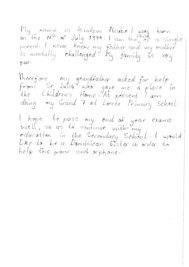 My name is
I was born
on the 14th of July 1999. I am the
of a single
parent. I never knew my father and my mother
is mentally challenged. My family is very
poor.
Therefore my grandfather asked for help
from Sr. who gave me a place in
the Children's Home. At present I am
doing my Grade 7 at Primary School.
I hope to pass my end of year exams
well, so as to continue with my
education in the Secondary School. I would
like to be a Dominican Sister in order to
help the poor and orphans.